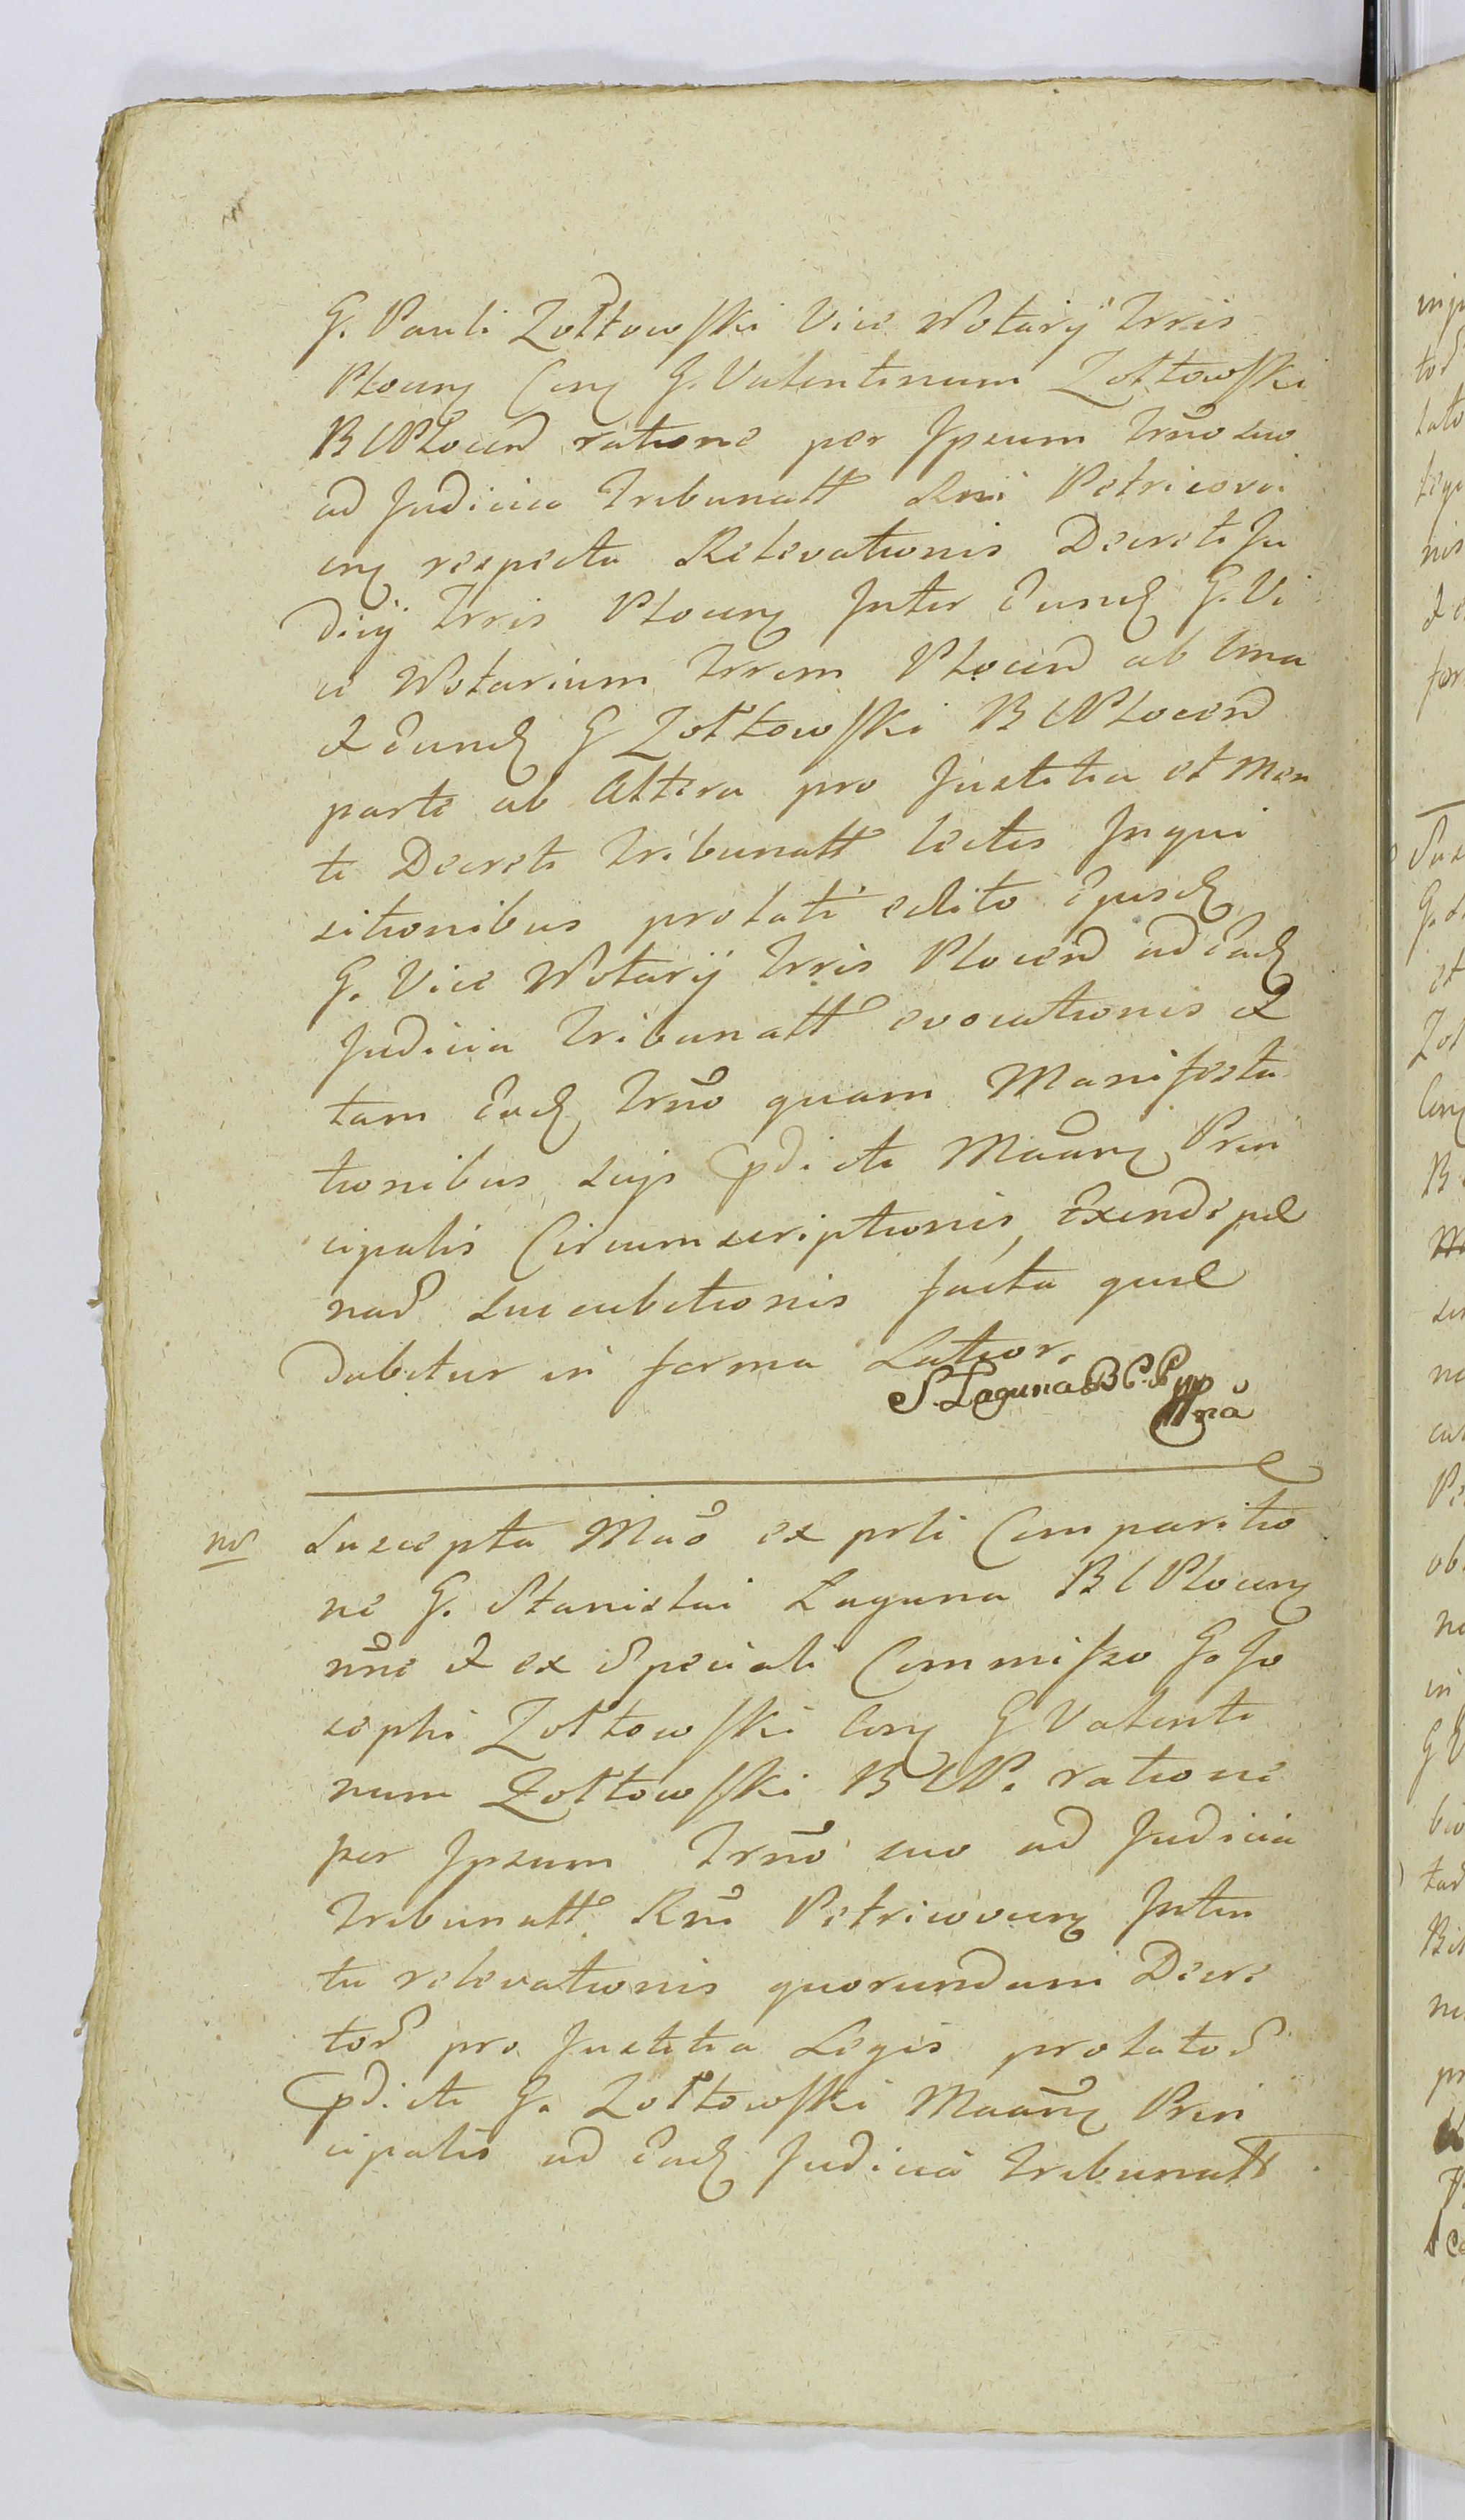 G. Pauli Zołtowski Vice Notarij Trris
Plocen Con G. Valentinum Zołtowski
B C Plocen ratione per Ipsum Trno suo
ad Judicia Tribunatt Rni Petricovi
en respectu Relevationis Decreti Ju
dicij Trris Plocen Inter Eund G. Vi
ce Notarium Trrem Plocen ab Una
& Eund G Zołtowski B C Plocen
parte ab Altera pro Justitia et Men
te Decreti Tribunatt lectis Inqui
sitionibus prolati edito Ejusd
G. Vice Notarij Trris Plocen ad Ead
Judicia Tribunatt evocationis &
tam Ead Trno quam Manifesta
tionibus suis pdicti Maan Prin
cipalis Circumscriptionis, Exinde pae
nar succubitionis facta quae
dabitur in forma Latior.
S. Laguna B C. P mpp
Nō Suscepta Mao ex prli Comparitio
ne G. Stanislai Laguna B C Plocen
nne & ex Speciali Commisso G. Jo
sephi Zołtowski Con G Valenti
num Zołtowski B C P. ratione
per Ipsum Trno suo ad Judicia
Tribunatt Rni Petricovien Intui
tu relevationis quorundam Decre
tor pro Justitia Legis prolator
pdicti G. Zołtowski Maan Prin
cipalis ad Ead Judicia Tribunatt